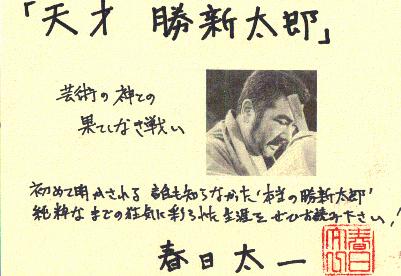 「天才 勝新太郎」
芸術の神との
果てしなき戦い
初めて明かされる 誰も知らなかった‘本当の勝新太郎’
純粋なまでの狂気に彩られた生涯をぜひお読み下さい！
春日太一